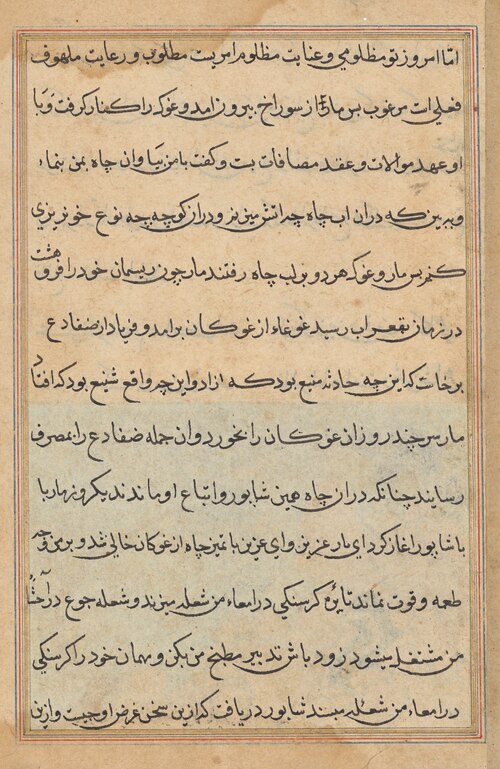 اما امروز تو مظلومی و عنایت مظلوم امریست مطلوب و رعایت ملهوف
فعلی است مرغوب پس مار از سوراخ بیرون امد و غوک را کنار کرفت و با
او عهد موالات و عقد مصافات بست و کفت با من بیا و ان چاه بمن بنماء
و ببین که دران اب چاه چه اتش میزنم و دران کوچه چه نوع خونریزی
کنم پس مار و غوک هر دو بر لب چاه رفتند مار چون ریسمان خود را فروهشت
در زمان بقعر اب رسید غوغاء از غوکان برامد و فریاد از ضفادع
برخاست که این چه حادثه منیع بود که زاد و این چه واقع شنیع بود که افتاد
مار سر چند روز ان غوکان را بخورد و ان جمله ضفادع را بمصرف
رسانید چنانکه دران چاه همین شاپور و اتباع او ماندند یکروز مار با
با شاپور اغاز کرد ای یار عزیز و ای عزیز با تمیز چاه از غوکان خالی شد و برمن وجه
طعمه و قوت نماند نایره کرسنکی در امعاء من شعله میزند و شعله جوع در احشاء
من مشتعل میشود زود باش تدبیر مطبخ من بکن و مهمان خود را کرسنکی
در امعاء من شعله میبند شاپور دریافت که ازین سخن غرض او چیست و ازین